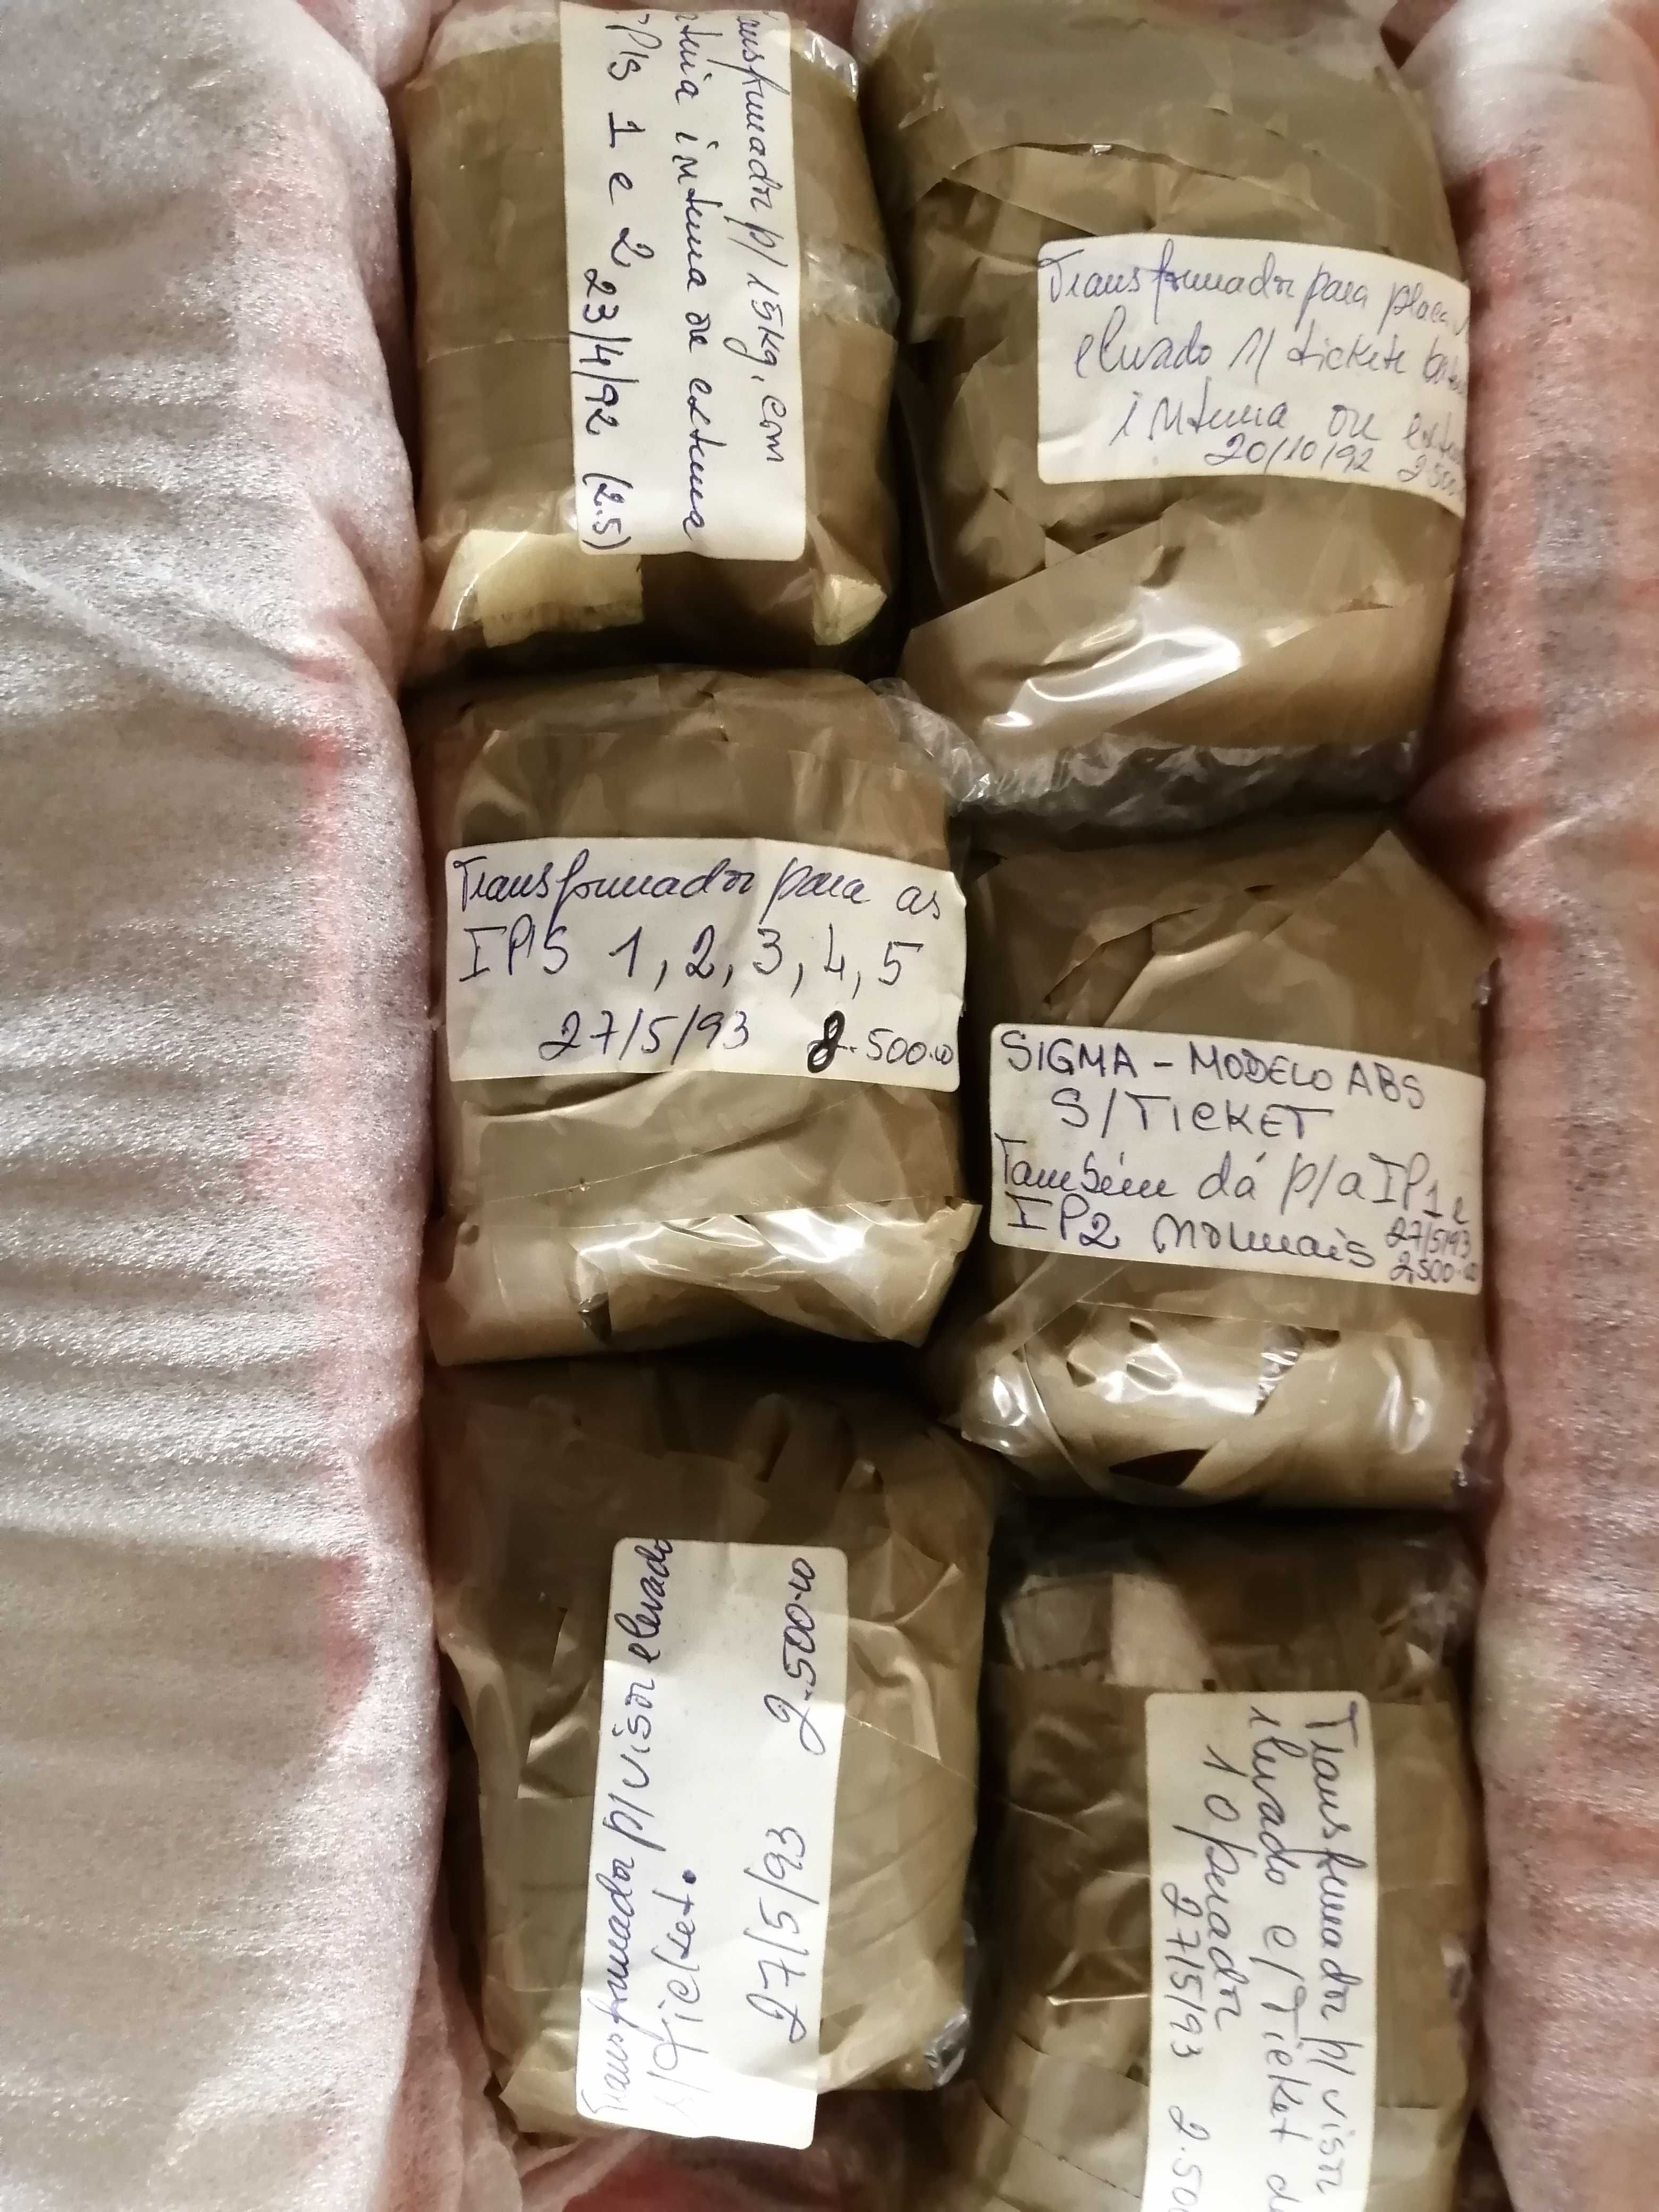 p/ 15kg. com
interna ou externa
1 e 2 23/4/92 (2.5)
Transformador para placa
elevado s/ tickete
interna ou
20/10/92
Transformador para as
IPS 1, 2, 3, 4, 5
27/5/93 2.500.00
SIGMA - MODELO ABS
S/TICKET
Também dá p/a IP1 e
IP2 normais 27/5/93
2,500.00
Transformador p/ visor elevado
s/Ticket.
27/5/93 2.500.00
Transformador p/ visor
elevado c/Ticket de
1 Operador
27/5/93